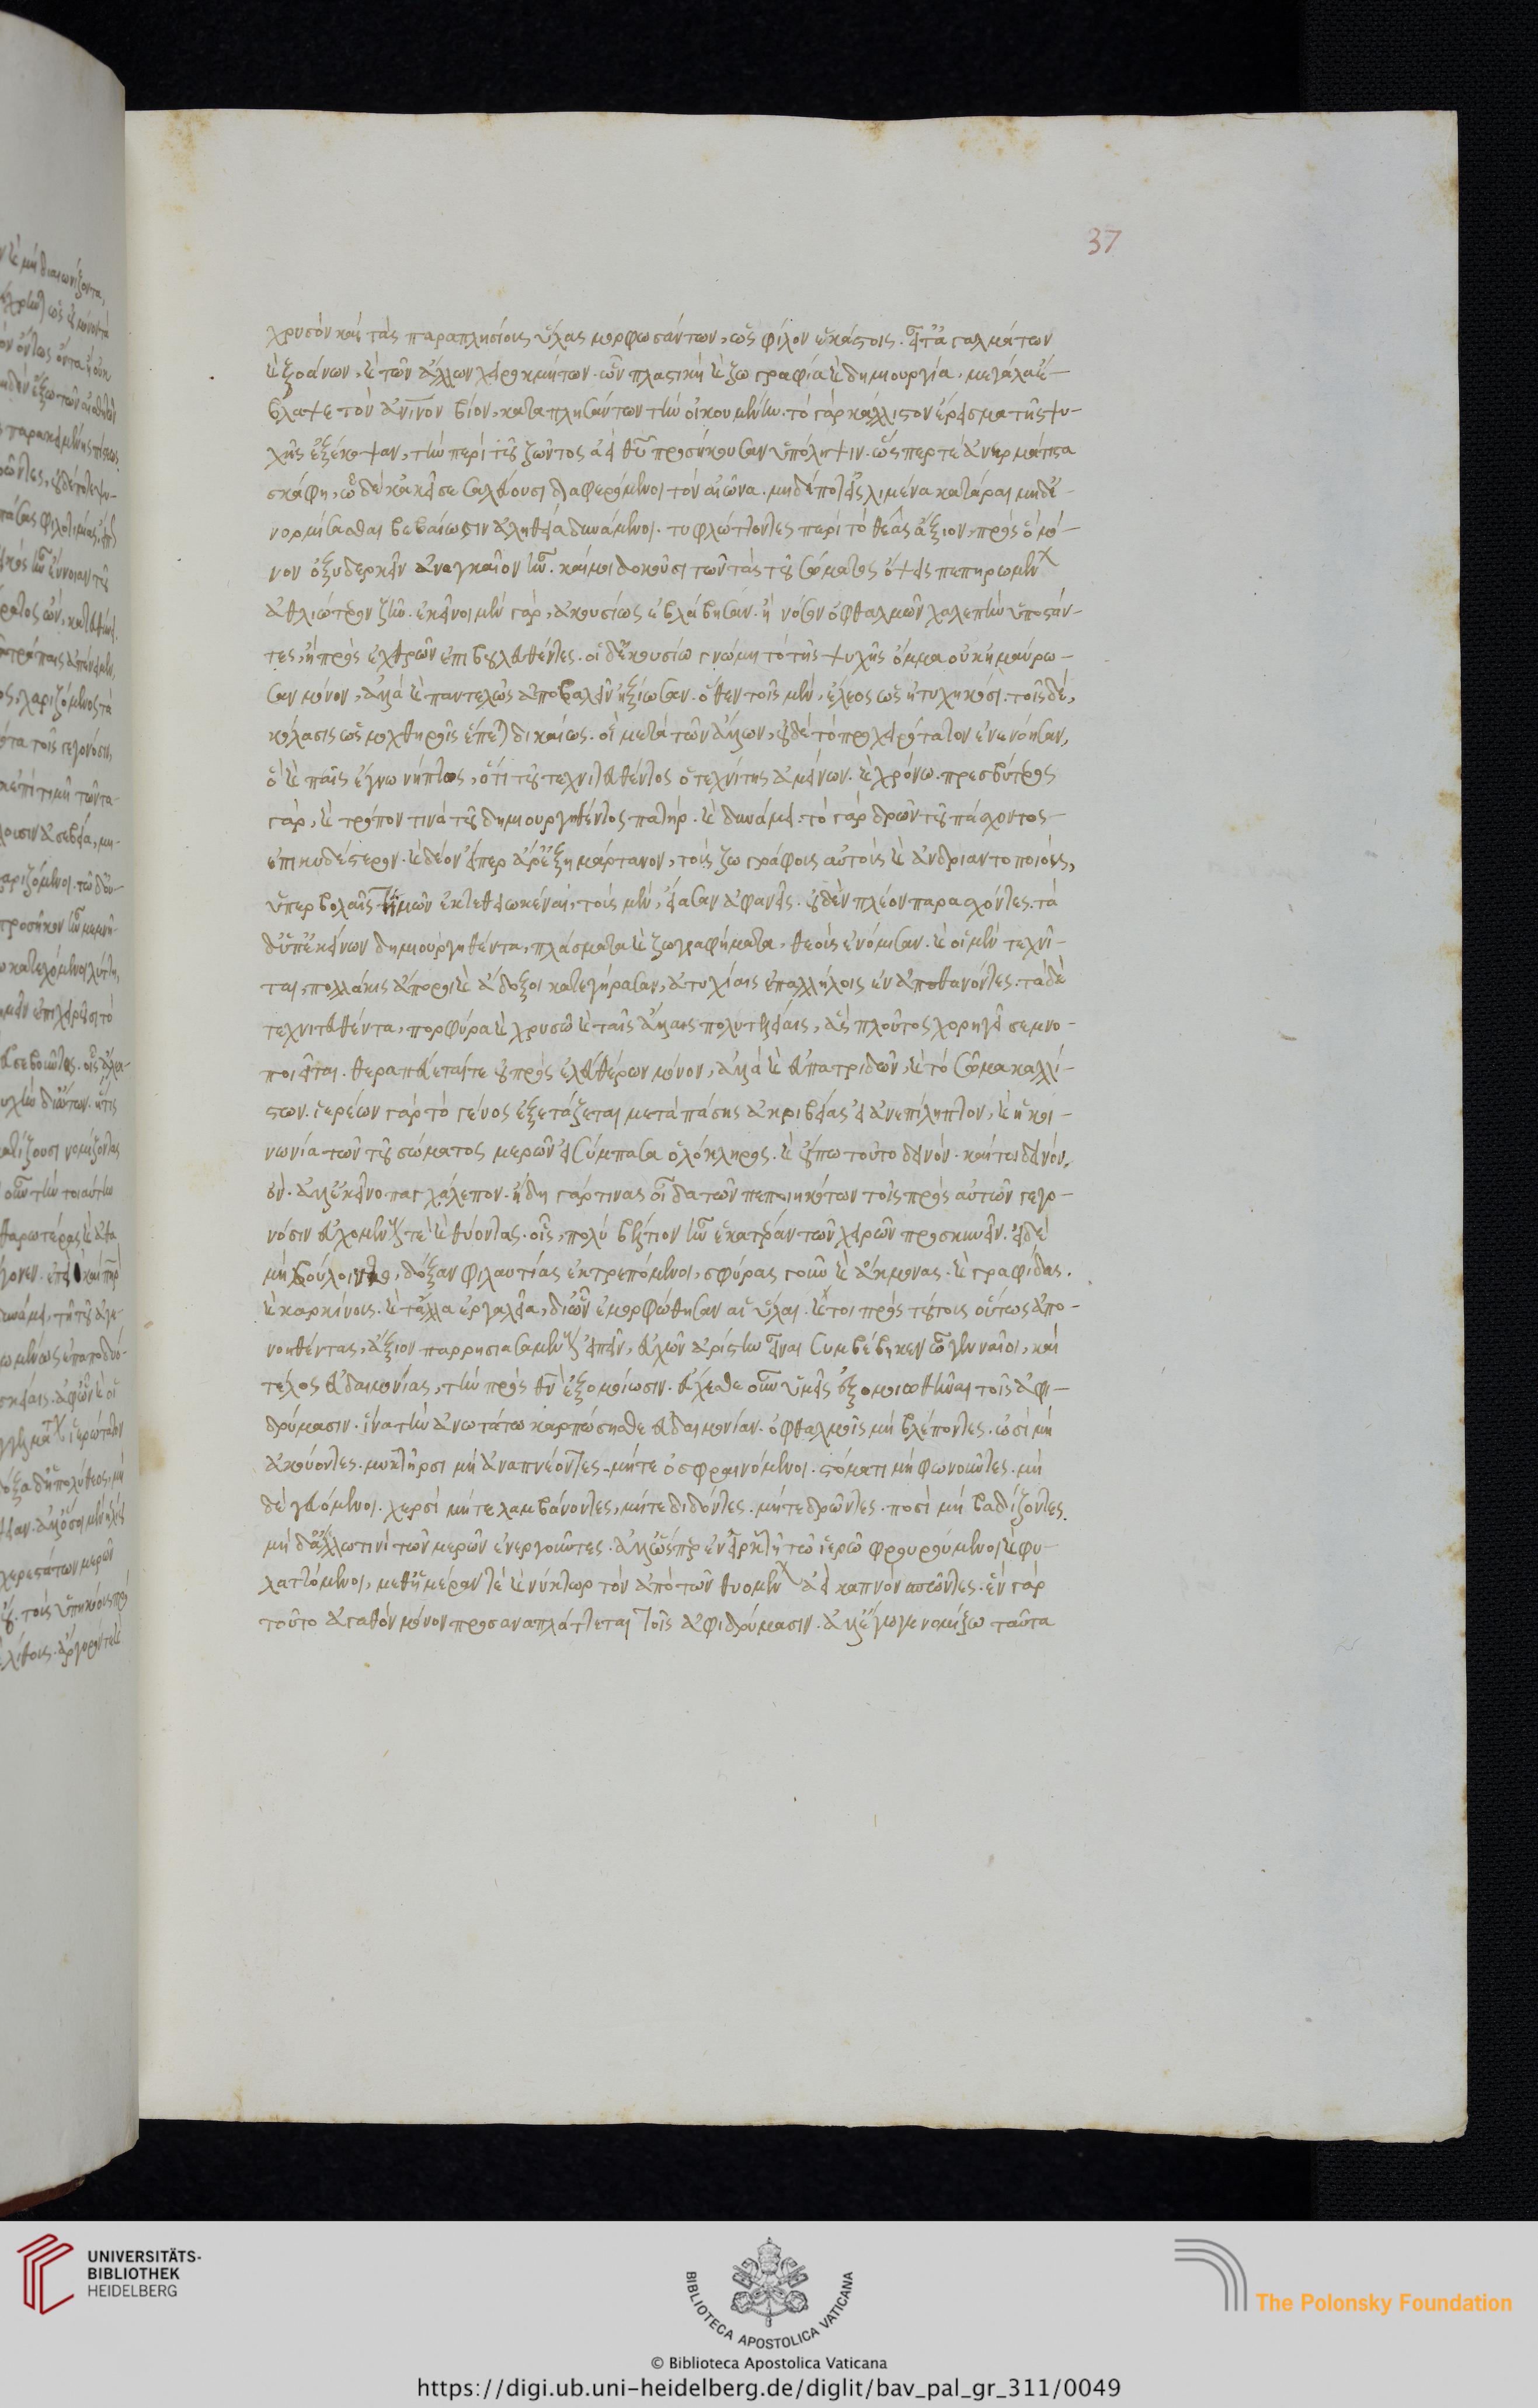 37
χρυσὸν καὶ τὰς παραπλησίους ὕλας μορφωσάντων, ὡς φίλον ἑκάστοις. εἶτα ἀγαλμάτων
καὶ ξοάνων, καὶ τῶν ἄλλων χειροκμήτων. ὧν πλαστικὴ καὶ ζωγραφία καὶ δημιουργία, μεγάλα ἔ-
βλαψε τὸν ἀνινον βίον, καταπλησάντων τὴν οἰκουμένην. τὸ γὰρ κάλλιστον ἔρεισμα τῆς ψυ-
χῆς ἐξέκοψαν, τὴν περὶ τοῦ ζῶντος ἀεὶ θυ προσήκουσαν ὑπόληψιν. ὥσπερ τὲ ἀνερμάτιστα
σκάφη, ὧδε κἀκεῖσε σαλεύουσι διαφερόμενοι τὸν αἰῶνα. μηδέποτε εἰς λιμένα κατάραι μηδὲ
νορμίσασθαι βεβαίως ἐν ἀληθεία δυνάμενοι. τυφλώττοντες περὶ τὸ θέας ἄξιον, πρὸς ὃ μό-
νον ὀξυδερκεῖν ἀναγκαῖον ἦν. καί μοι δοκοῦσι τῶν τὰς τοῦ σώματος ὄψεις πεπηρωμένων
ἀθλιώτερον ζῆν. ἐκεῖνοι μὲν γὰρ, ἀκουσίως ἐβλάβησαν. ἢ νόσον ὀφθαλμῶν χαλεπὴν ὑποστάν-
τες, ἢ πρὸς ἐχθρῶν ἐπιβουλευθέντες. οἱ δ' ἑκουσίω γνώμη τὸ τῆς ψυχῆς ὄμμα οὐκ ἠμαύρω-
σαν μόνον, ἀλλὰ καὶ παντελῶς ἀποβαλεῖν ἠξίωσαν. ὅθεν τοῖς μὲν, ἔλεος ὡς ἠτυχηκόσι. τοῖς δὲ,
κόλασις ὡς μοχθηροῖς ἕπεται δικαίως. οἳ μετὰ τῶν ἄλλων, οὐδὲ τὸ προχειρότατον ἐνενόησαν,
ὃ καὶ παῖς ἔγνω νήπιος, ὅτι τοῦ τεχνιτευθέντος ὁ τεχνίτης ἀμείνων. καὶ χρόνω. πρεσβύτερος
γὰρ, καὶ τρόπον τινὰ τοῦ δημιουργηθέντος πατήρ. καὶ δυνάμει. τὸ γὰρ δρῶν τοῦ πάσχοντος
ἐπικυδέστερον. καὶ δέον εἴπερ ἄρα ἐξημάρτανον, τοὺς ζωγράφους αὐτοὺς καὶ ἀνδριαντοποιοὺς,
ὑπερβολαῖς τιμῶν ἐκτεθειωκέναι, τοὺς μὲν, εἴασαν ἀφανεῖς. οὐδὲν πλέον παρασχόντες. τὰ
δ' ὑπ' ἐκείνων δημιουργηθέντα, πλάσματα καὶ ζωγραφήματα, θεοὺς ἐνόμισαν. καὶ οἱ μὲν τεχνῖ-
ται, πολλάκις ἄποροι καὶ ἄδοξοι κατεγήρασαν, ἀτυχίαις ἐπαλλήλοις ἐναποθανόντες. τὰ δὲ
τεχνιτευθέντα, πορφύρα καὶ χρυσῶ καὶ ταῖς ἄλλαις πολυτελείαις, ἃς πλοῦτος χορηγεῖ σεμνο-
ποιεῖται. θεραπεύεταί τε οὐ πρὸς ἐλευθέρων μόνον, ἀλλὰ καὶ εὐπατριδῶν, καὶ τὸ σῶμα καλλί-
στων. ἱερέων γὰρ τὸ γένος ἐξετάζεται μετὰ πάσης ἀκριβείας εἰ ἀνεπίληπτον, καὶ ἡ κοι-
νωνία τῶν τοῦ σώματος μερῶν εἰ σύμπασα ὁλόκληρος. καὶ οὔπω τοῦτο δεινόν. καίτοι δεινόν
ὄν. ἀλλ' ἐκεῖνο παγχάλεπον. ἤδη γάρ τινας οἶδα τῶν πεποιηκότων τοῖς πρὸς αὐτῶν γεγο-
νόσιν εὐχομένους τε καὶ θύοντας. οἷς, πολὺ βέλτιον ἦν ἑκατέραν τῶν χειρῶν προσκυνεῖν. εἰ δὲ
μὴ βούλοιντο, δόξαν φιλαυτίας ἐκτρεπόμενοι, σφύρας γοῦν καὶ ἄκμονας. καὶ γραφίδας.
καὶ καρκίνους. καὶ τἄλλα ἐργαλεῖα, δι' ὧν ἐμορφώθησαν αἱ ὕλαι. καίτοι πρὸς τοὺς οὕτως ἀπο-
νοηθέντας, ἄξιον παρρησιασαμένους εἰπεῖν, εὐχῶν ἀρίστην εἶναι συμβέβηκεν ὦ γενναῖοι, καὶ
τέλος εὐδαιμονίας, τὴν πρὸς θν ἐξομοίωσιν. εὔχεσθε οὖν ὑμεῖς ἐξομοιωθῆναι τοῖς ἀφι-
δρύμασιν. ἵνα τὴν ἀνωτάτω καρπώσησθε εὐδαιμονίαν. ὀφθαλμοῖς μὴ βλέποντες. ὠσὶ μὴ
ἀκούοντες. μυκτῆρσι μὴ ἀναπνέοντες. μήτε ὀσφραινόμενοι. στόματι μὴ φωνοῦντες. μη
δὲ γευόμενοι. χερσὶ μήτε λαμβάνοντες, μήτε διδόντες. μήτε δρῶντες. ποσὶ μὴ βαδίζοντες.
μὴ δ' ἄλλω τινὶ τῶν μερῶν ἐνεργοῦντες. ἀλλ' ὥσπερ ἐν εἱρκτῇ τῶ ἱερῶ φρουρούμενοι καὶ φυ-
λαττόμενοι, μεθ' ἡμέραν τὲ καὶ νύκτωρ τὸν ἀπὸ τῶν θυομένων ἀεὶ καπνὸν σπῶντες. ἓν γὰρ
τοῦτο ἀγαθὸν μόνον προσαναπλάττεται τοῖς ἀφιδρύμασιν. ἀλλ' ἔγωγε νομίζω ταῦτα
UNIVERSITÄTS-
BIBLIOTHEK
HEIDELBERG
BIBLIOTECA APOSTOLICA VATICANA
The Polonsky Foundation
© Biblioteca Apostolica Vaticana
https://digi.ub.uni-heidelberg.de/diglit/bav_pal_gr_311/0049